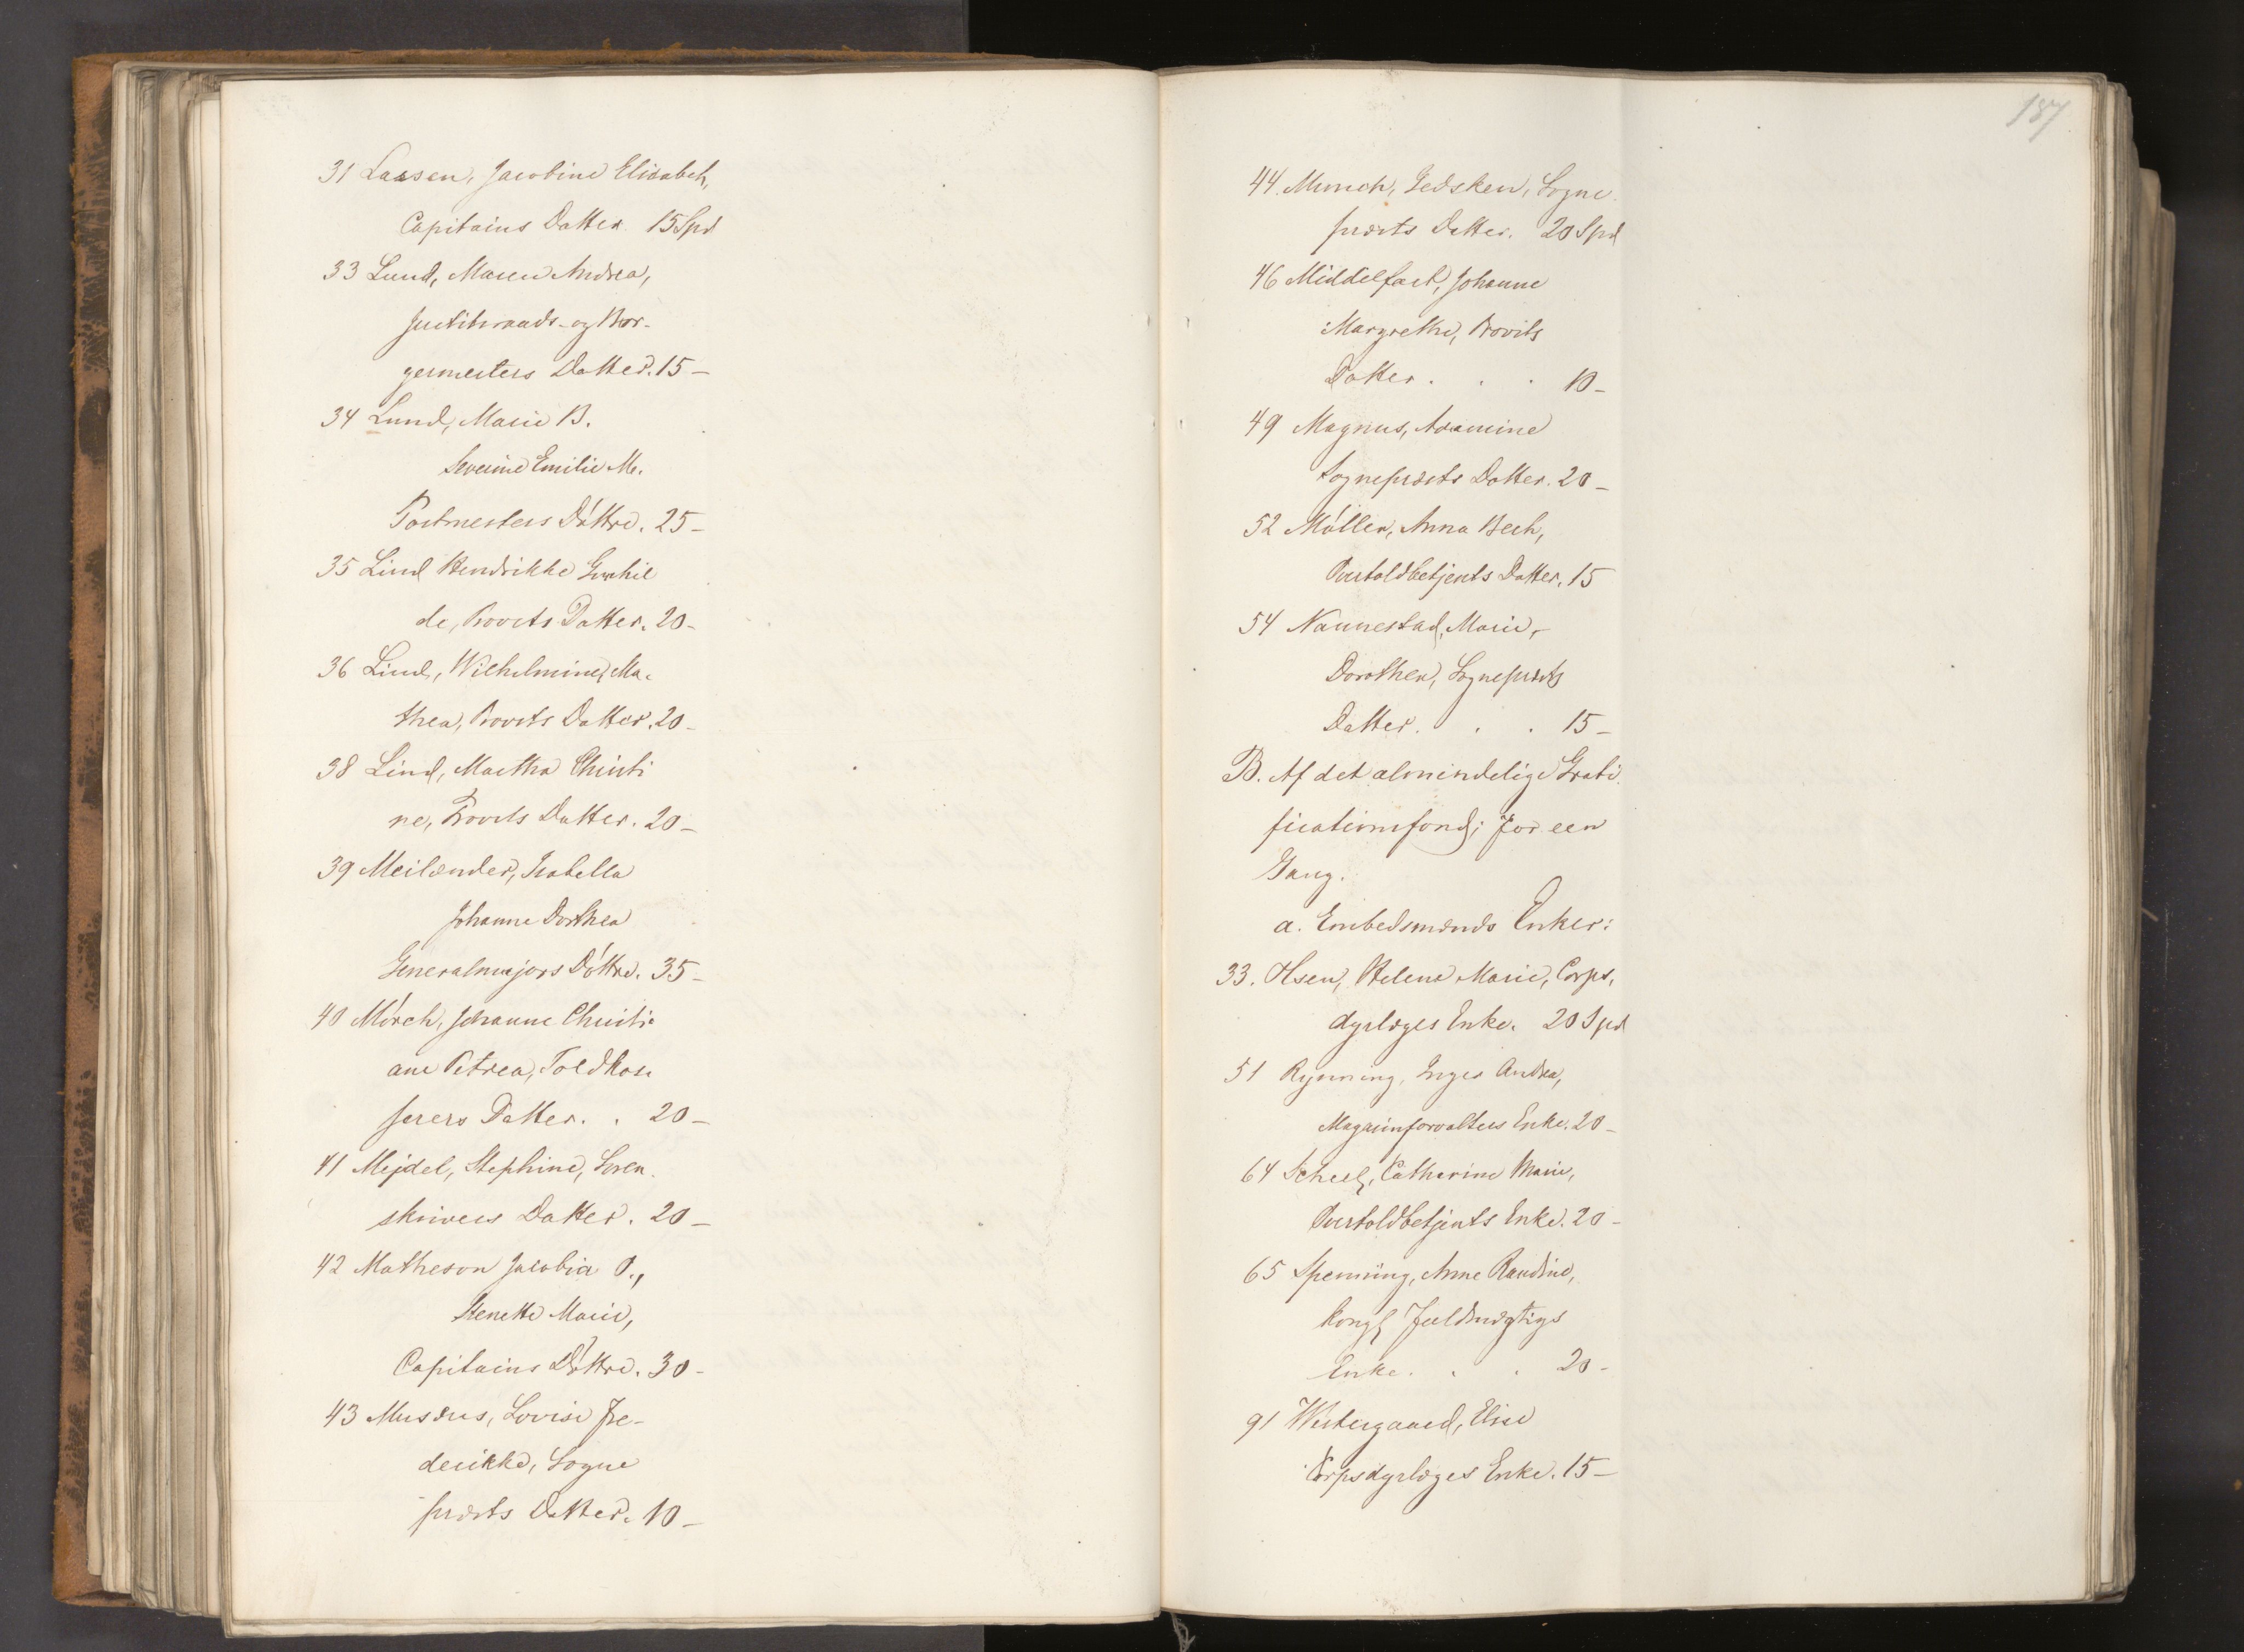 31 Lassen, Jacobine Elisabeth,
Capitains Datter 15 Spd
33 Lund, Maren Andrea,
Justitsraads- og Bor-
germesters Datter. 15 –
34 Lund, Marie B.
Severine Emilie M.
Postmesters Døttre. 25 –
35 Lind Hendrikke Gunhil
de, Provsts Datter. 20 –
36 Lind, Wilhelmine Ma-
thea, Provsts Datter. 20 –
38 Lind, Martha Christi
ne, Provsts Datter. 20 –
39 Meilænder, Isabella
Johanne Dorthea
Generalmajors Døttre. 35 –
40 Mörch, Johanne Christi-
ane Petrea, Toldkas-
serers Datter. . 20 –
41 Mejdel, Stephine, Soren-
skrivers Datter. 20 –
42 Matheson Jacobia O.,
Henette Marie,
Capitains Døttre. 30 –
43 Musæus, Lovise Fre-
derikke, Sogne
præsts Datter. 10 –
187
44. Munch, Zedsken, Sogne
præsts Datter. 20 Spd
46 Middelfart, Johanne
Margrethe, Provsts
Datter . . . 10 –
49 Magnus, Adamine
Sognepræsts Datter. 20 –
52 Møller, Anna Bech,
Overtoldbetjents Datter. 15
54 Nannestad, Marie,
Dorothea, Sognepræsts
Datter . . . 15 –
B. Af det almindelige Grati
ficationsfond; for een
Gang.
a. Embedsmænds Enker:
33. Olsen, Helene Marie, Corps-
dyrlæges Enke. 20 Spd
51 Rynning, Inger Andrea,
Magasinforvalters Enke. 20 –
64 Scheel, Catharine Marie,
Overtoldbetjents Enke. 20 –
65 Spenning, Anne Randine,
kongl. Fuldmægtigs
Enke. . . 20 –
91 Westergaard, Elise
Corpsdyrlæges Enke. 15 –